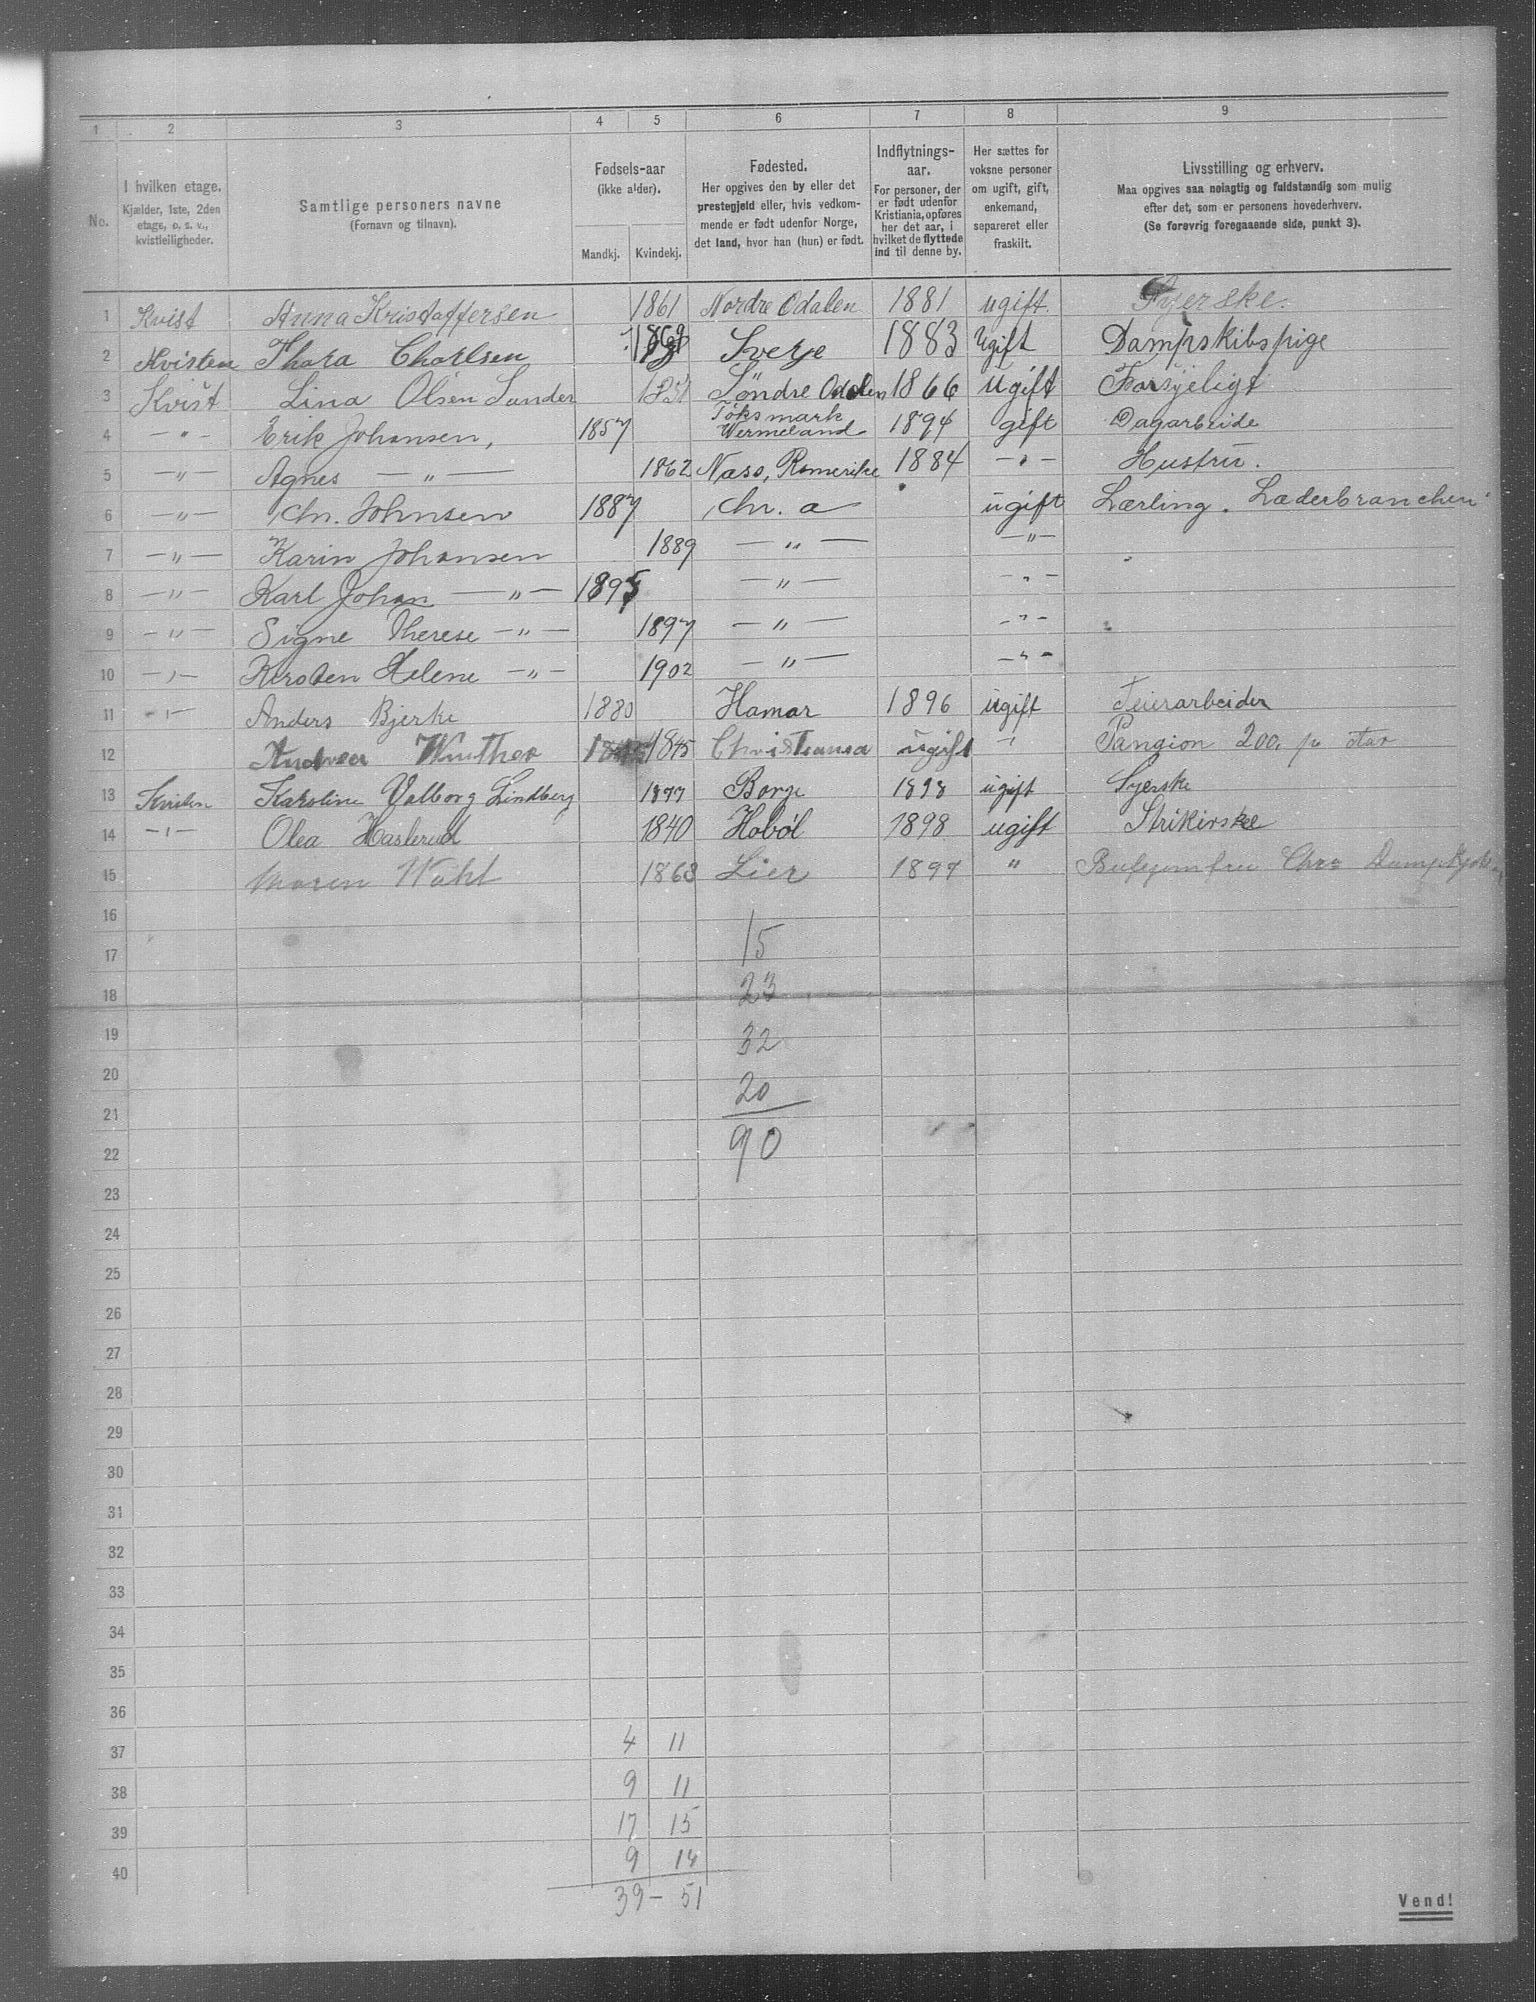 1 2 3 4 5 6 7 8 9
No.
I hvilken etage.
Kjælder, 1ste, 2den
etage, o. s. v.,
kvistleiligheder.
Samtlige personers navne
(Fornavn og tilnavn).
Fødsels-aar
(ikke alder).
Mandkj. Kvindekj.
Fødested.
Her opgives den by eller det
prestegjeld eller, hvis vedkom-
mende er født udenfor Norge,
det land, hvor han (hun) er født.
Indflytnings-
aar.
For personer, der
er født udenfor
Kristiania, opføres
her det aar, i
hvilket de flyttede
ind til denne by.
Her sættes for
voksne personer
om ugift, gift,
enkemand,
separeret eller
fraskilt.
Livsstilling og erhverv.
Maa opgives saa nøiagtig og fuldstændig som mulig
efter det, som er personens hovederhverv.
(Se forøvrig foregaaende side, punkt 3).
1 Kvist Anna Kristaffersen 1861 Nordre Odalen 1881 ugift. Syerske.
2 Kvisten Thora Charlsen Sverje 1883 Ugift Dampskibspige
3 Kvist Lina Olsen Sander Söndre Odalen 1866 ugift
4 — " — Erik Johansen, 1857 Töksmark Wermeland 1894 gift Dagarbeide
5 — " — Agnes — " — 1862 Næss, Romerike 1884 — " — Hustru.
6 — " — Chr. Johnsen 1887 Chr. a ugift Lærling. Læderbranchen
7 — " — Karin Johansen 1889 — " — — " —
8 — " — Karl Johan — " — 1895 — " — — " —
9 — " — Signe Therese — " — 1897 — " — — " —
10 — " — Kirsten Helene — " — 1902 — " — — " —
11 — " — Anders Bjerke 1880 Hamar 1896 ugift Feierarbeider
12 Andrea Winther 1845 Christiania ugift " Pangion 200. pr Aar
13 Kvisten Karoline Valborg Lindberg 1877 Borge 1898 ugift Syerske
14 — " — Olea Haslerud 1840 Hobøl 1898 ugift Strikirske
15 Maren Wahl 1868 Lier 1897 "
16
17
18
19
20
21
22
23
24
25
26
27
28
29
30
31
32
33
34
35
36
37
38
39
40
15
23
32
20
90
4 11
9 11
17 15
9 14
39 – 51
Vend!